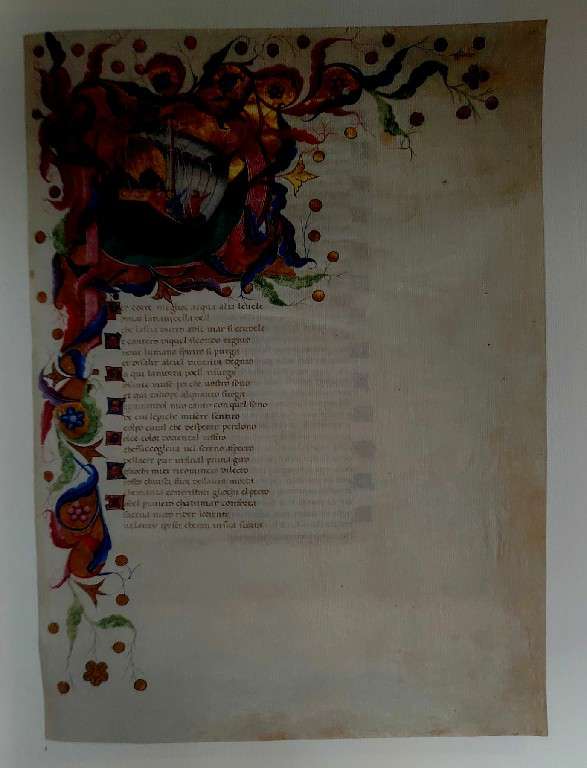 er correr miglior acqua alza leuele
omai la nauicella
che lascia dietro asse mar si crudele
t cantero di quel secondo regno
doue lumano spirito si purga
et di salir alciel diuenta degno
a qui la morta poesi risurga
o sante muse poi che uostro sono
et qui caliope alquanto surga
eguitando il mio canto con quel sono
di cui le piche misere sentiro
colpo tal che desperar perdono
olce color doriental zaffiro
che saccoglieua nel sereno aspecto
dellaere pur infin al primo giro
gliochi miei ricomincio dilecto
tosto chusci fuor dellaura morta
che mauia contristati gliochi el pecto
obel pianeto chadamar conforta
faceua tutto rider loriente
uelando i pesci cherano in sua scorta